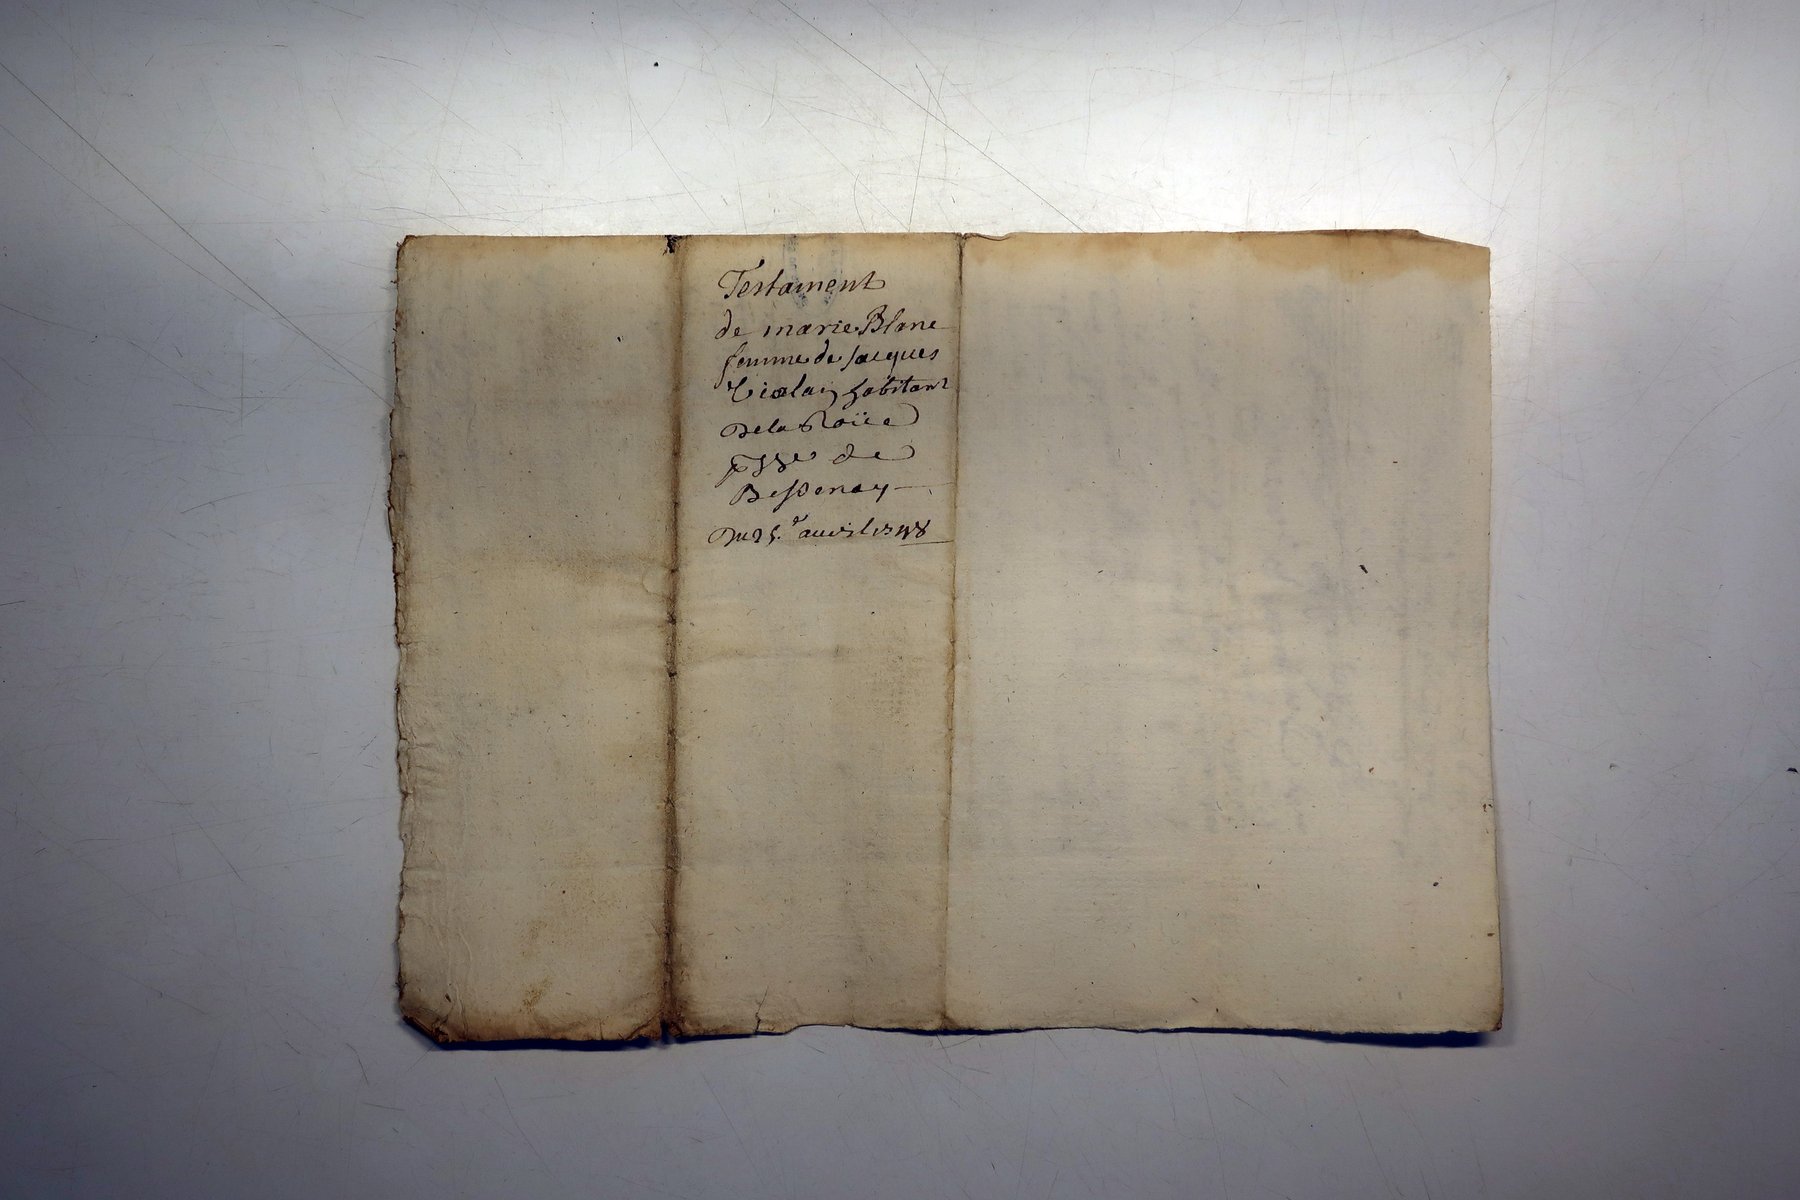 Testament
de marie Blanc
femme de Jacques
habitant
De la
psse de
Bessenay
Du 25.e auril 1748